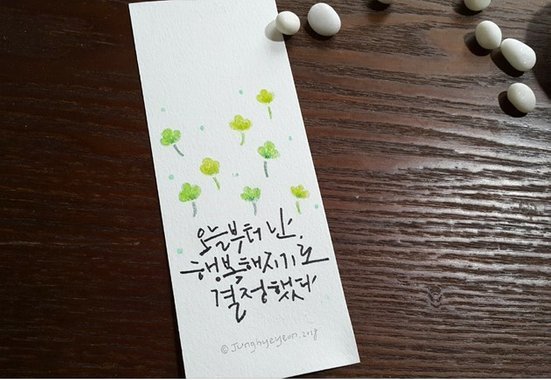 오늘부터 난,
행복해지기로
결정했다
© Junghyeyeon. 2018